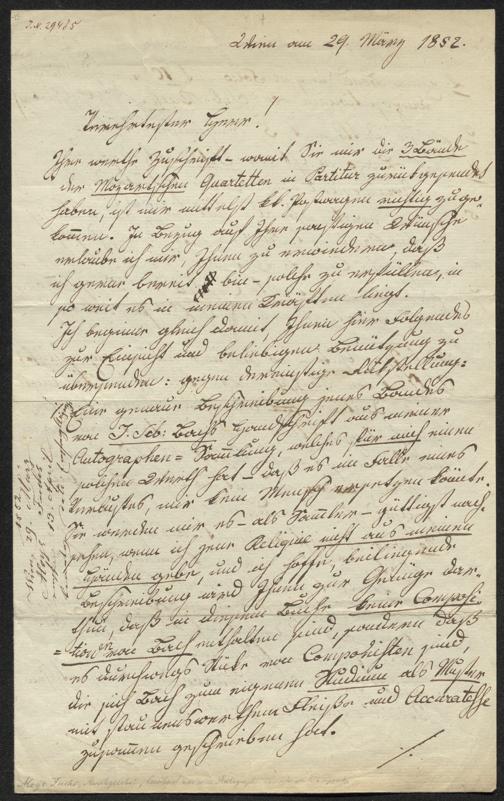 Wien am 29. März 1852.
Verehrtester Herr!
Ihre werthe Zuschrift – womit Sie mir die 3 Bände
der Mozartschen Quartetten in Partitur zurückgesendet
haben, ist mir mittelst kk. Postwagen richtig zuge-
kommen. In Bezug auf Ihre sonstigen Wünsche
erlaube ich mir Ihnen zu erwiedern, daß
ich gerne bereit bin – solche zu erfüllen, in
so weit es in meinen Kräften liegt.
Ich beginne gleich damit Ihnen hier Folgendes
zur Einsicht und beliebigen Benützung zu
übersenden: gegen dereinstige Rückstellung:
Eine genaue Beschreibung jenes Bandes
von J. Seb: Bachs Handschrift aus meiner
Autographen=Sammlung, welches für mich einen
solchen Werth hat – daß es im Falle eines
Verlustes, mir kein Mensch ersetzen könnte.
Sie werden mir es – als Sammler – gütigst nach-
sehen, wenn ich jene Reliquie nicht aus meinen
Händen gebe, und ich hoffe, beiliegende
Beschreibung wird Ihnen zur Genüge dar-
thun, daß in diesem Buche keine Composi-
=tionen von Bach enthalten sind, sondern daß
es durchwegs Stücke von Componisten sind,
die sich Bach zum eigenen Studium als Muster
mit staunenswerthem Fleiße und Accuratesse
zusammen geschrieben hat.
Wien 29 März
1852
Aloys Fuchs